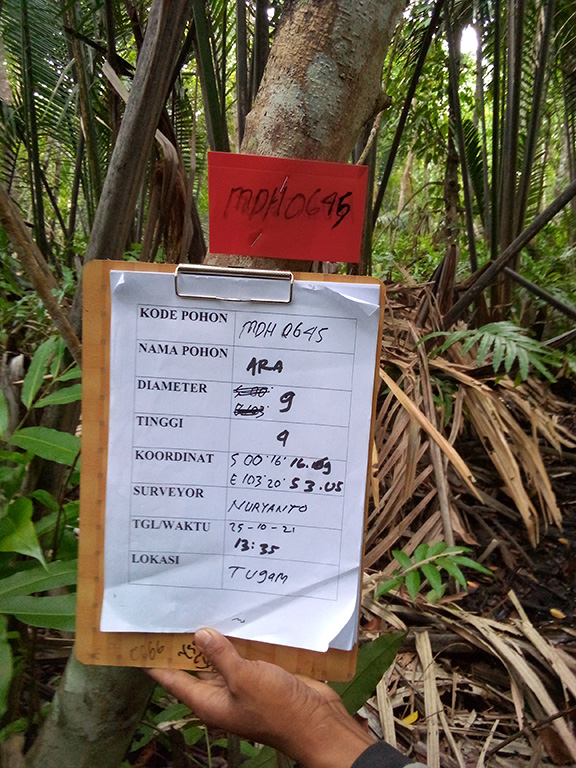 MDH0645
KODE POHON MDH 0645
NAMA POHON ARA
DIAMETER 9
TINGGI 9
KOORDINAT S 00°16' 16.09
E 103°20' 53.05
SURVEYOR NURYANTO
TGL/WAKTU 25-10-21
13:35
LOKASI TUgaM